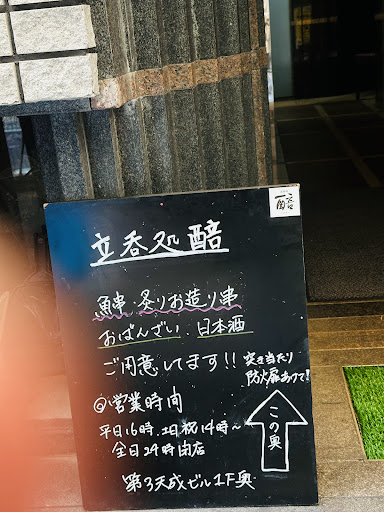 醅
立呑処 醅
魚串・炙りお造り串
おばんざい、日本酒
ご用意してます!!
突き当たり
防火扉あけて!!
@営業時間
平日16時、土日祝14時~
全日24時閉店
この奥
第3天成ビル1F奥